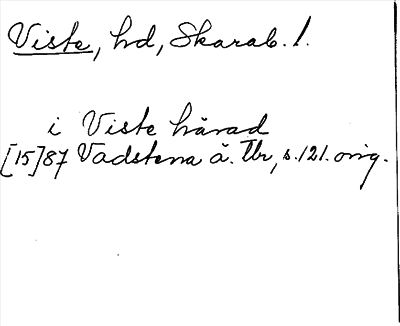 Viste, hd, Skarab. l.
i Viste härad
[15]87 Vadstena ä. Tb, s. 121. orig.